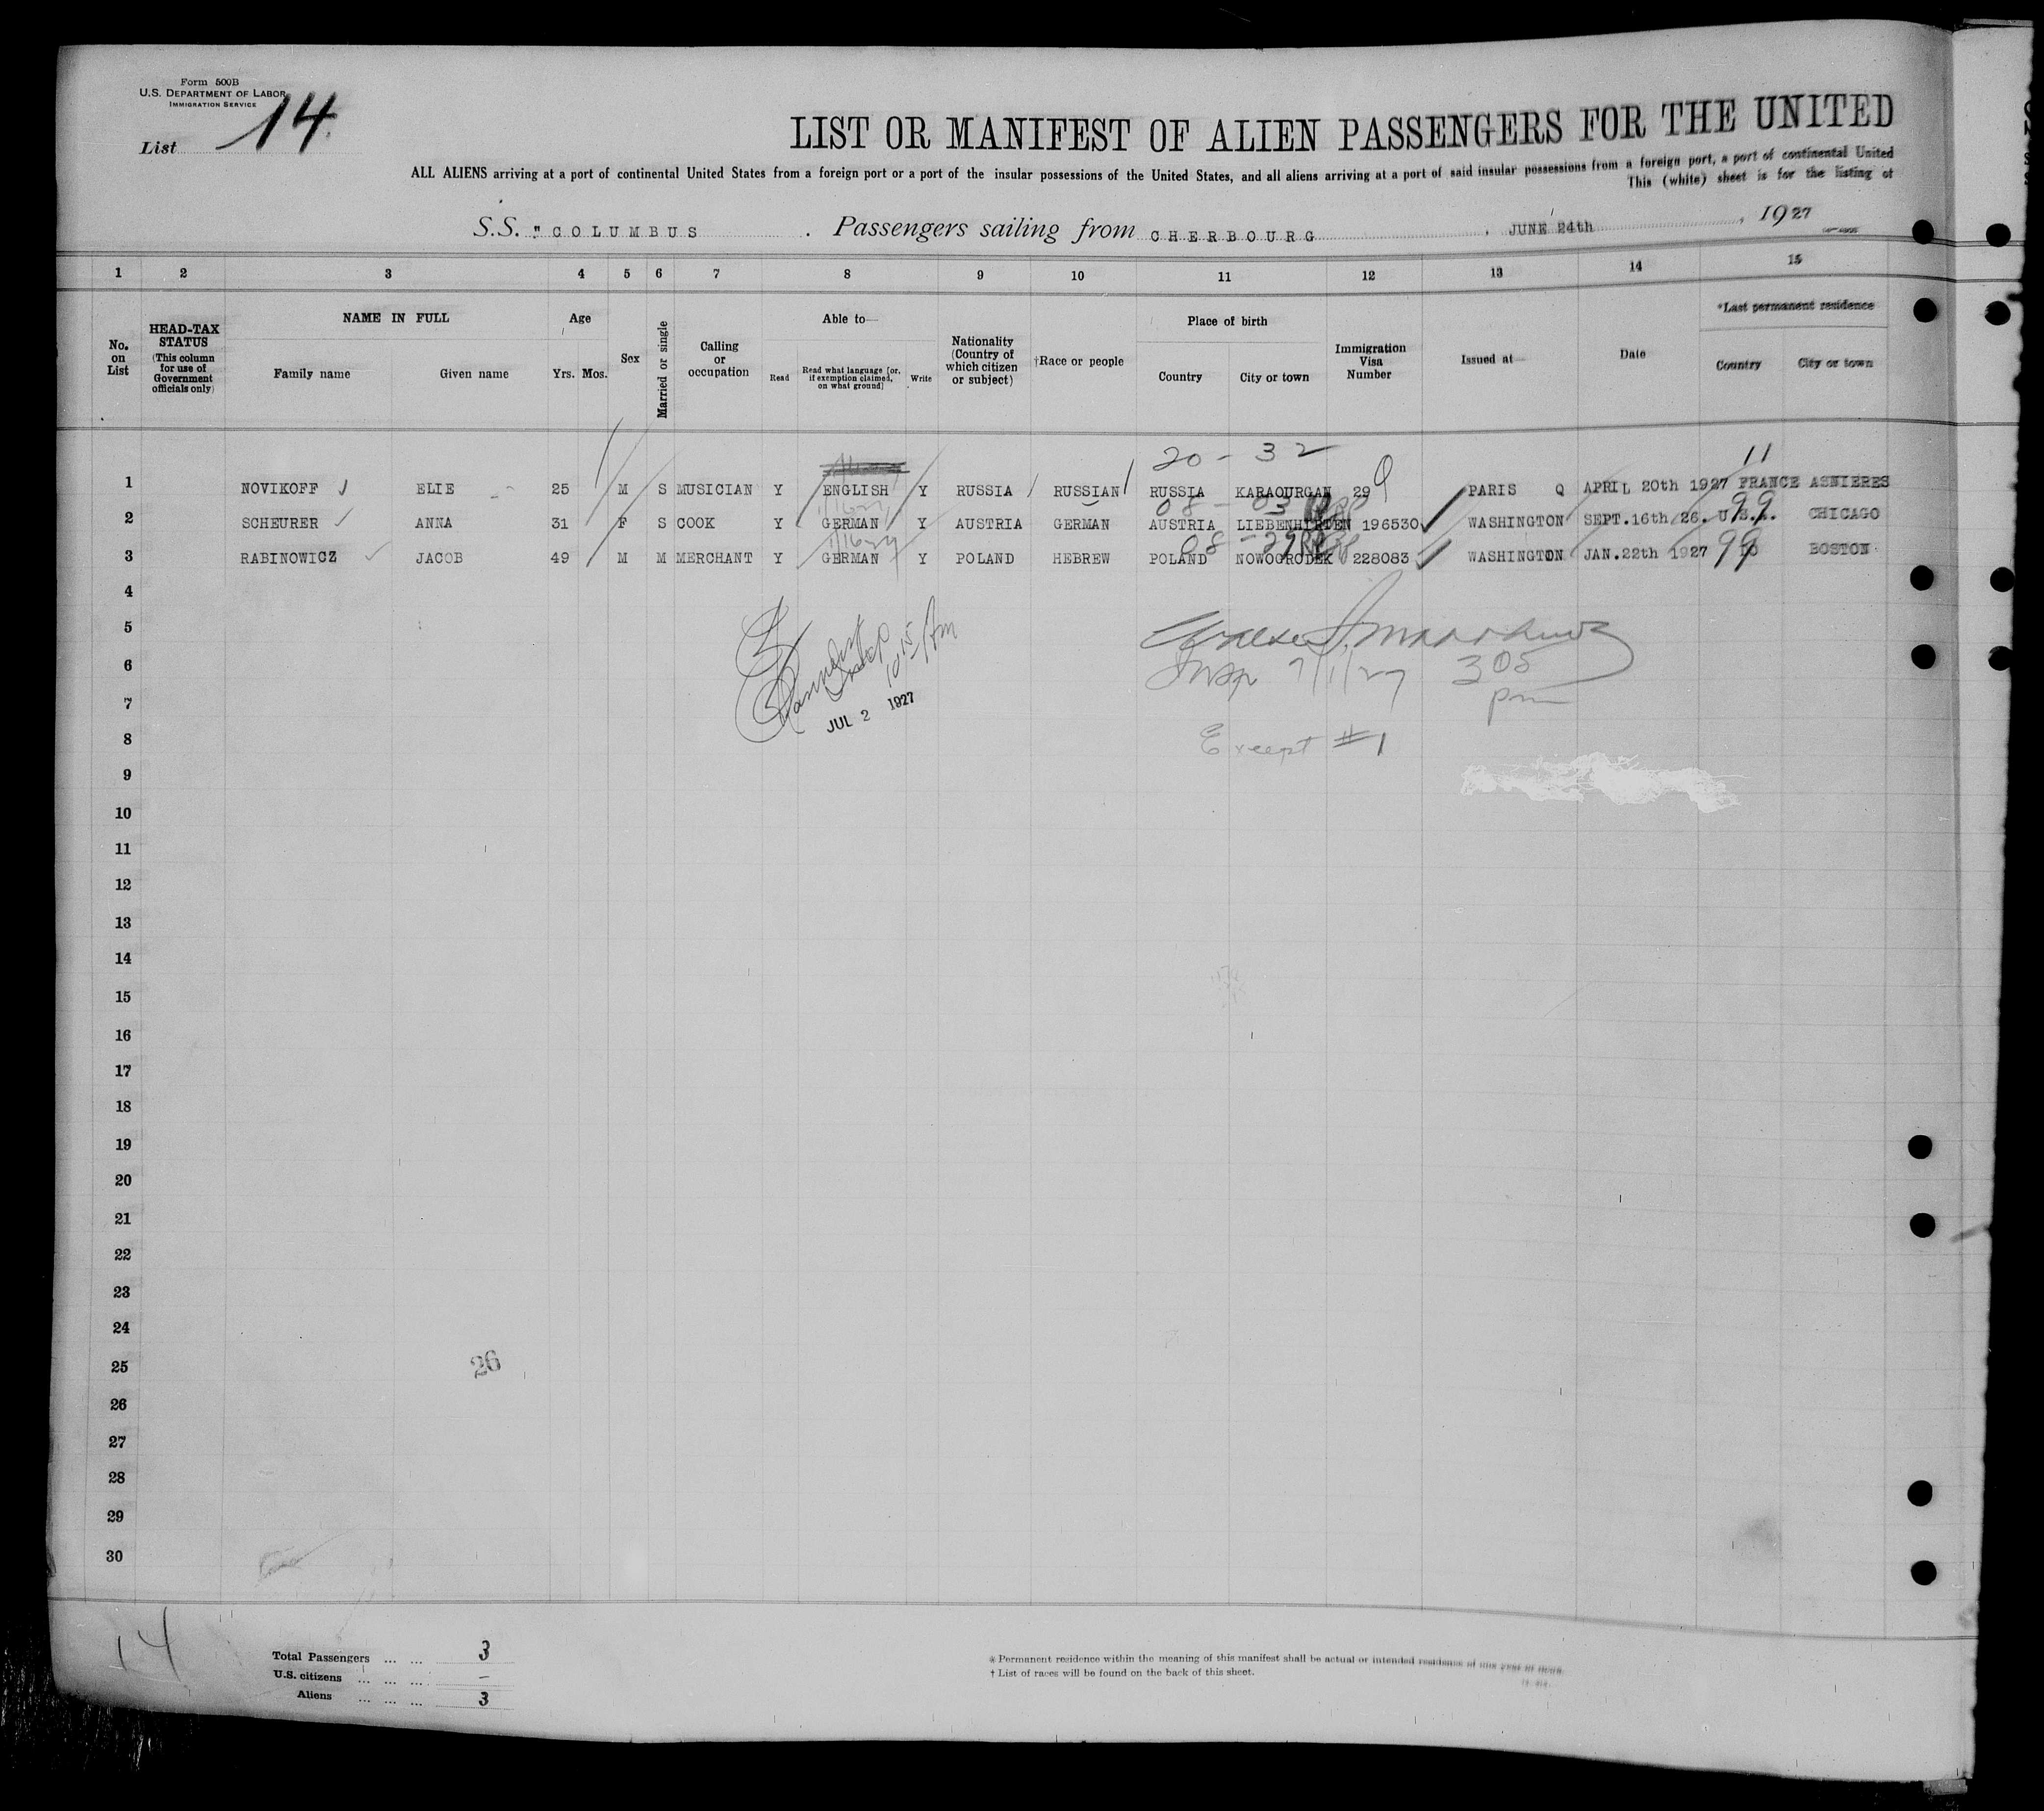 Form 500B
U.S. DEPARTMENT OF LABOR
IMMIGRATION SERVICE
List 14
LIST OR MANIFEST OF ALIEN PASSENGERS FOR THE UNITED
ALL ALIENS arriving at a port of continental United States from a foreign port or a port of the insular possessions of the United States, and all aliens arriving at a port of said insular possessions from a foreign port, a port of continental United
This (white) sheet is for the listing of
S.S. "COLUMBUS . Passengers sailing from CHERBOURG , JUNE 24th , 1927
1 2 3 4 5 6 7 8 9 10 11 12 13 14 15
No. on List
HEAD-TAX STATUS (This column for use of Government officials only)
NAME IN FULL
Family name Given name
Age
Yrs. Mos.
Sex
Married or single
Calling or occupation
Able to—
Read
Read what language [or, if exemption claimed, on what ground]
Write
Nationality (Country of which citizen or subject)
†Race or people
Place of birth
Country City or town
Immigration Visa Number
Issued at—
Date
*Last permanent residence
Country City or town
20 - 32 11
1 NOVIKOFF ELIE 25 M S MUSICIAN Y ENGLISH Y RUSSIA RUSSIAN RUSSIA KARAOURGAN 29 Q PARIS Q APRIL 20th 1927 FRANCE ASNIERES
08 - 03 99
2 SCHEURER ANNA 31 F S COOK Y GERMAN Y AUSTRIA GERMAN AUSTRIA 196530 WASHINGTON SEPT.16th 26. U.S.A. CHICAGO
08 - 29 99
3 RABINOWICZ JACOB 49 M M MERCHANT Y GERMAN Y POLAND HEBREW POLAND NOWOGRODEK 228083 WASHINGTON JAN.22th 1927 BOSTON
4
5
6
7
8
9
10
11
12
13
14
15
16
17
18
19
20
21
22
23
24
25
26
27
28
29
30
Insp
10 15 Am
JUL 2 1927
Insp 7/1/27 305
pm
Except #1
26
14
Total Passengers ... ... 3
U.S. citizens ... ... ... —
Aliens ... ... ... 3
* Permanent residence within the meaning of this manifest shall be actual or intended residence of one year or more.
† List of races will be found on the back of this sheet.